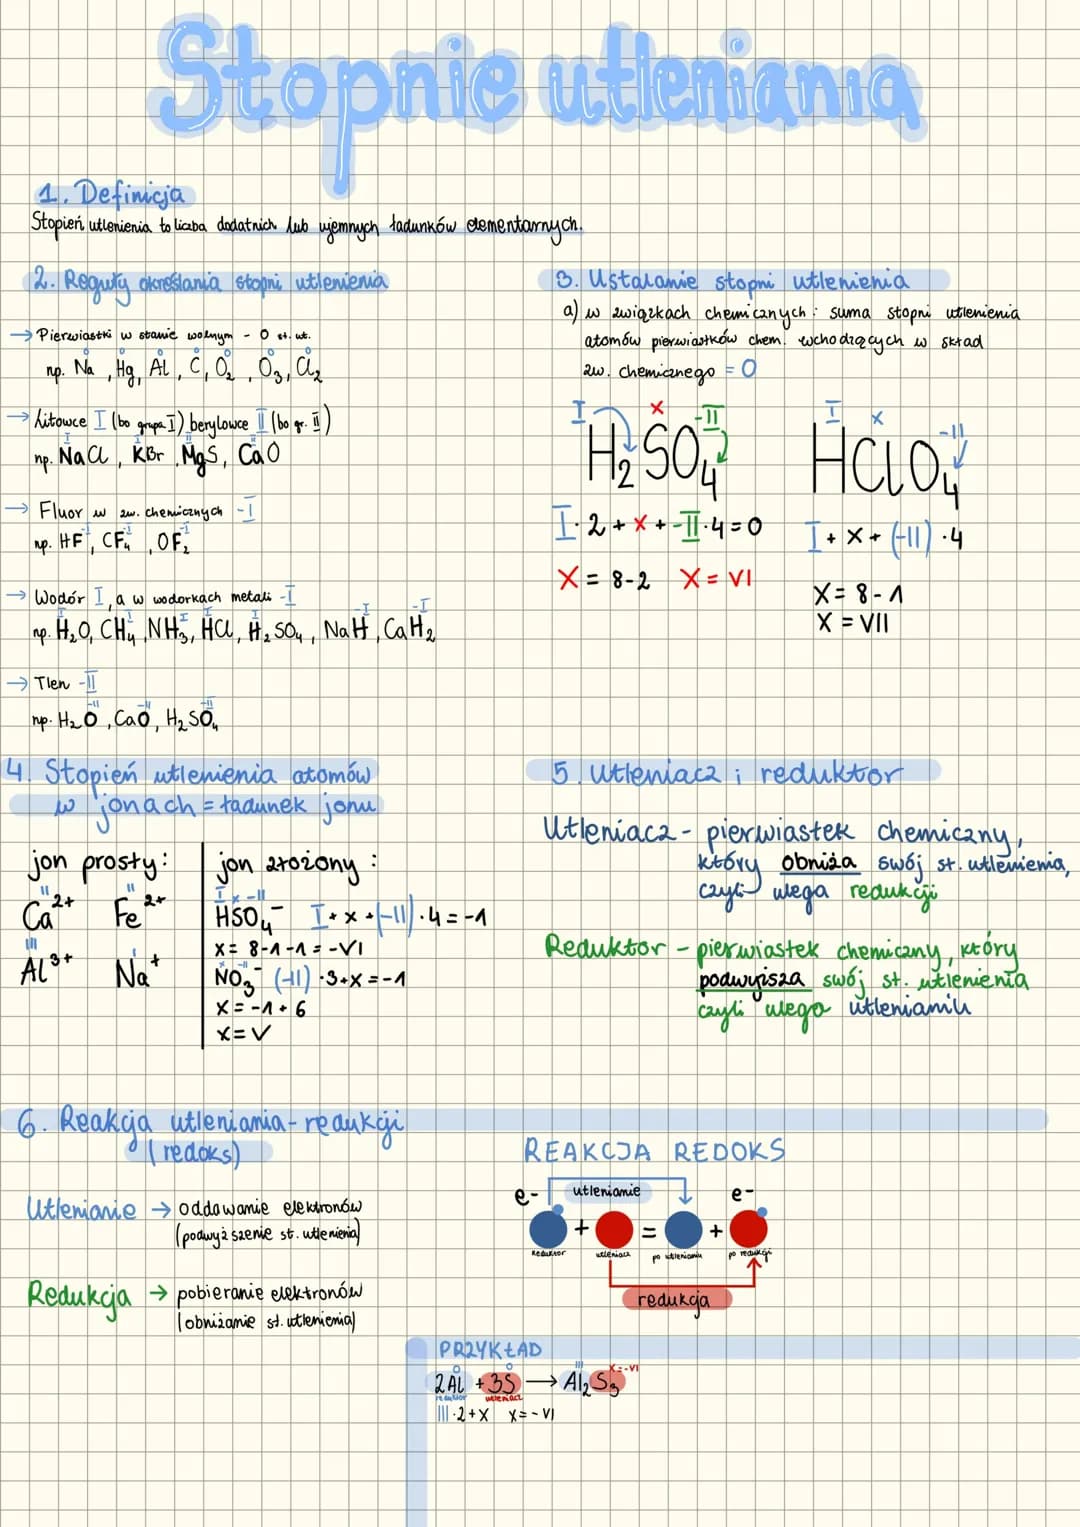 Stopnie utleniania
1. Definicja
Stopień utlenienia to liczba dodatnich lub ujemnych ładunków elementarnych.
2. Reguły określania stopni utlenienia
→ Pierwiastki w stanie wolnym - 0 st. ut.
0 0 0 0 0 0 0
np. Na, Hg, Al, C, O₂, O₃, Cl₂
→ Litowce I (bo grupa I) berylowce II (bo gr. II)
I I II II
np. NaCl, KBr, MgS, CaO
→ Fluor w zw. chemicznych -I
-I -I -I
np. HF, CF₄, OF₂
→ Wodór I, a w wodorkach metali -I
I I I I I -I -I
np. H₂O, CH₄, NH₃, HCl, H₂SO₄, NaH, CaH₂
→ Tlen -II
-II -II -II
np. H₂O, CaO, H₂SO₄
3. Ustalanie stopni utlenienia
a) w związkach chemicznych: suma stopni utlenienia
atomów pierwiastków chem. wchodzących w skład
zw. chemicznego = 0
I x -II
H₂SO₄
I·2 + x + -II·4 = 0
X = 8-2 X = VI
I x -II
HClO₄
I + x + (-II) ·4
X = 8-1
X = VII
4. Stopień utlenienia atomów
w jonach = ładunek jonu
jon prosty:
II II
Ca²⁺ Fe²⁺
III I
Al³⁺ Na⁺
jon złożony:
I x -II
HSO₄⁻ I + x + (-II) ·4 = -1
x = 8-1-1 = -VI
NO₃⁻ (-II) ·3+x = -1
x = -1 + 6
x = V
5. Utleniacz i reduktor
Utleniacz - pierwiastek chemiczny,
który obniża swój st. utlenienia,
czyli ulega redukcji
Reduktor - pierwiastek chemiczny, który
podwyższa swój st. utlenienia
czyli ulega utlenianiu
6. Reakcja utleniania-redukcji
(redoks)
Utlenianie → oddawanie elektronów
(podwyższenie st. utlenienia)
Redukcja → pobieranie elektronów
(obniżanie st. utlenienia)
REAKCJA REDOKS
e- utlenianie e-
+ = +
Reduktor utleniacz po utlenianiu po redukcji
redukcja
PRZYKŁAD
0 0 III x=-VI
2Al + 3S → Al₂S₃
reduktor utleniacz
III·2+x x = -VI